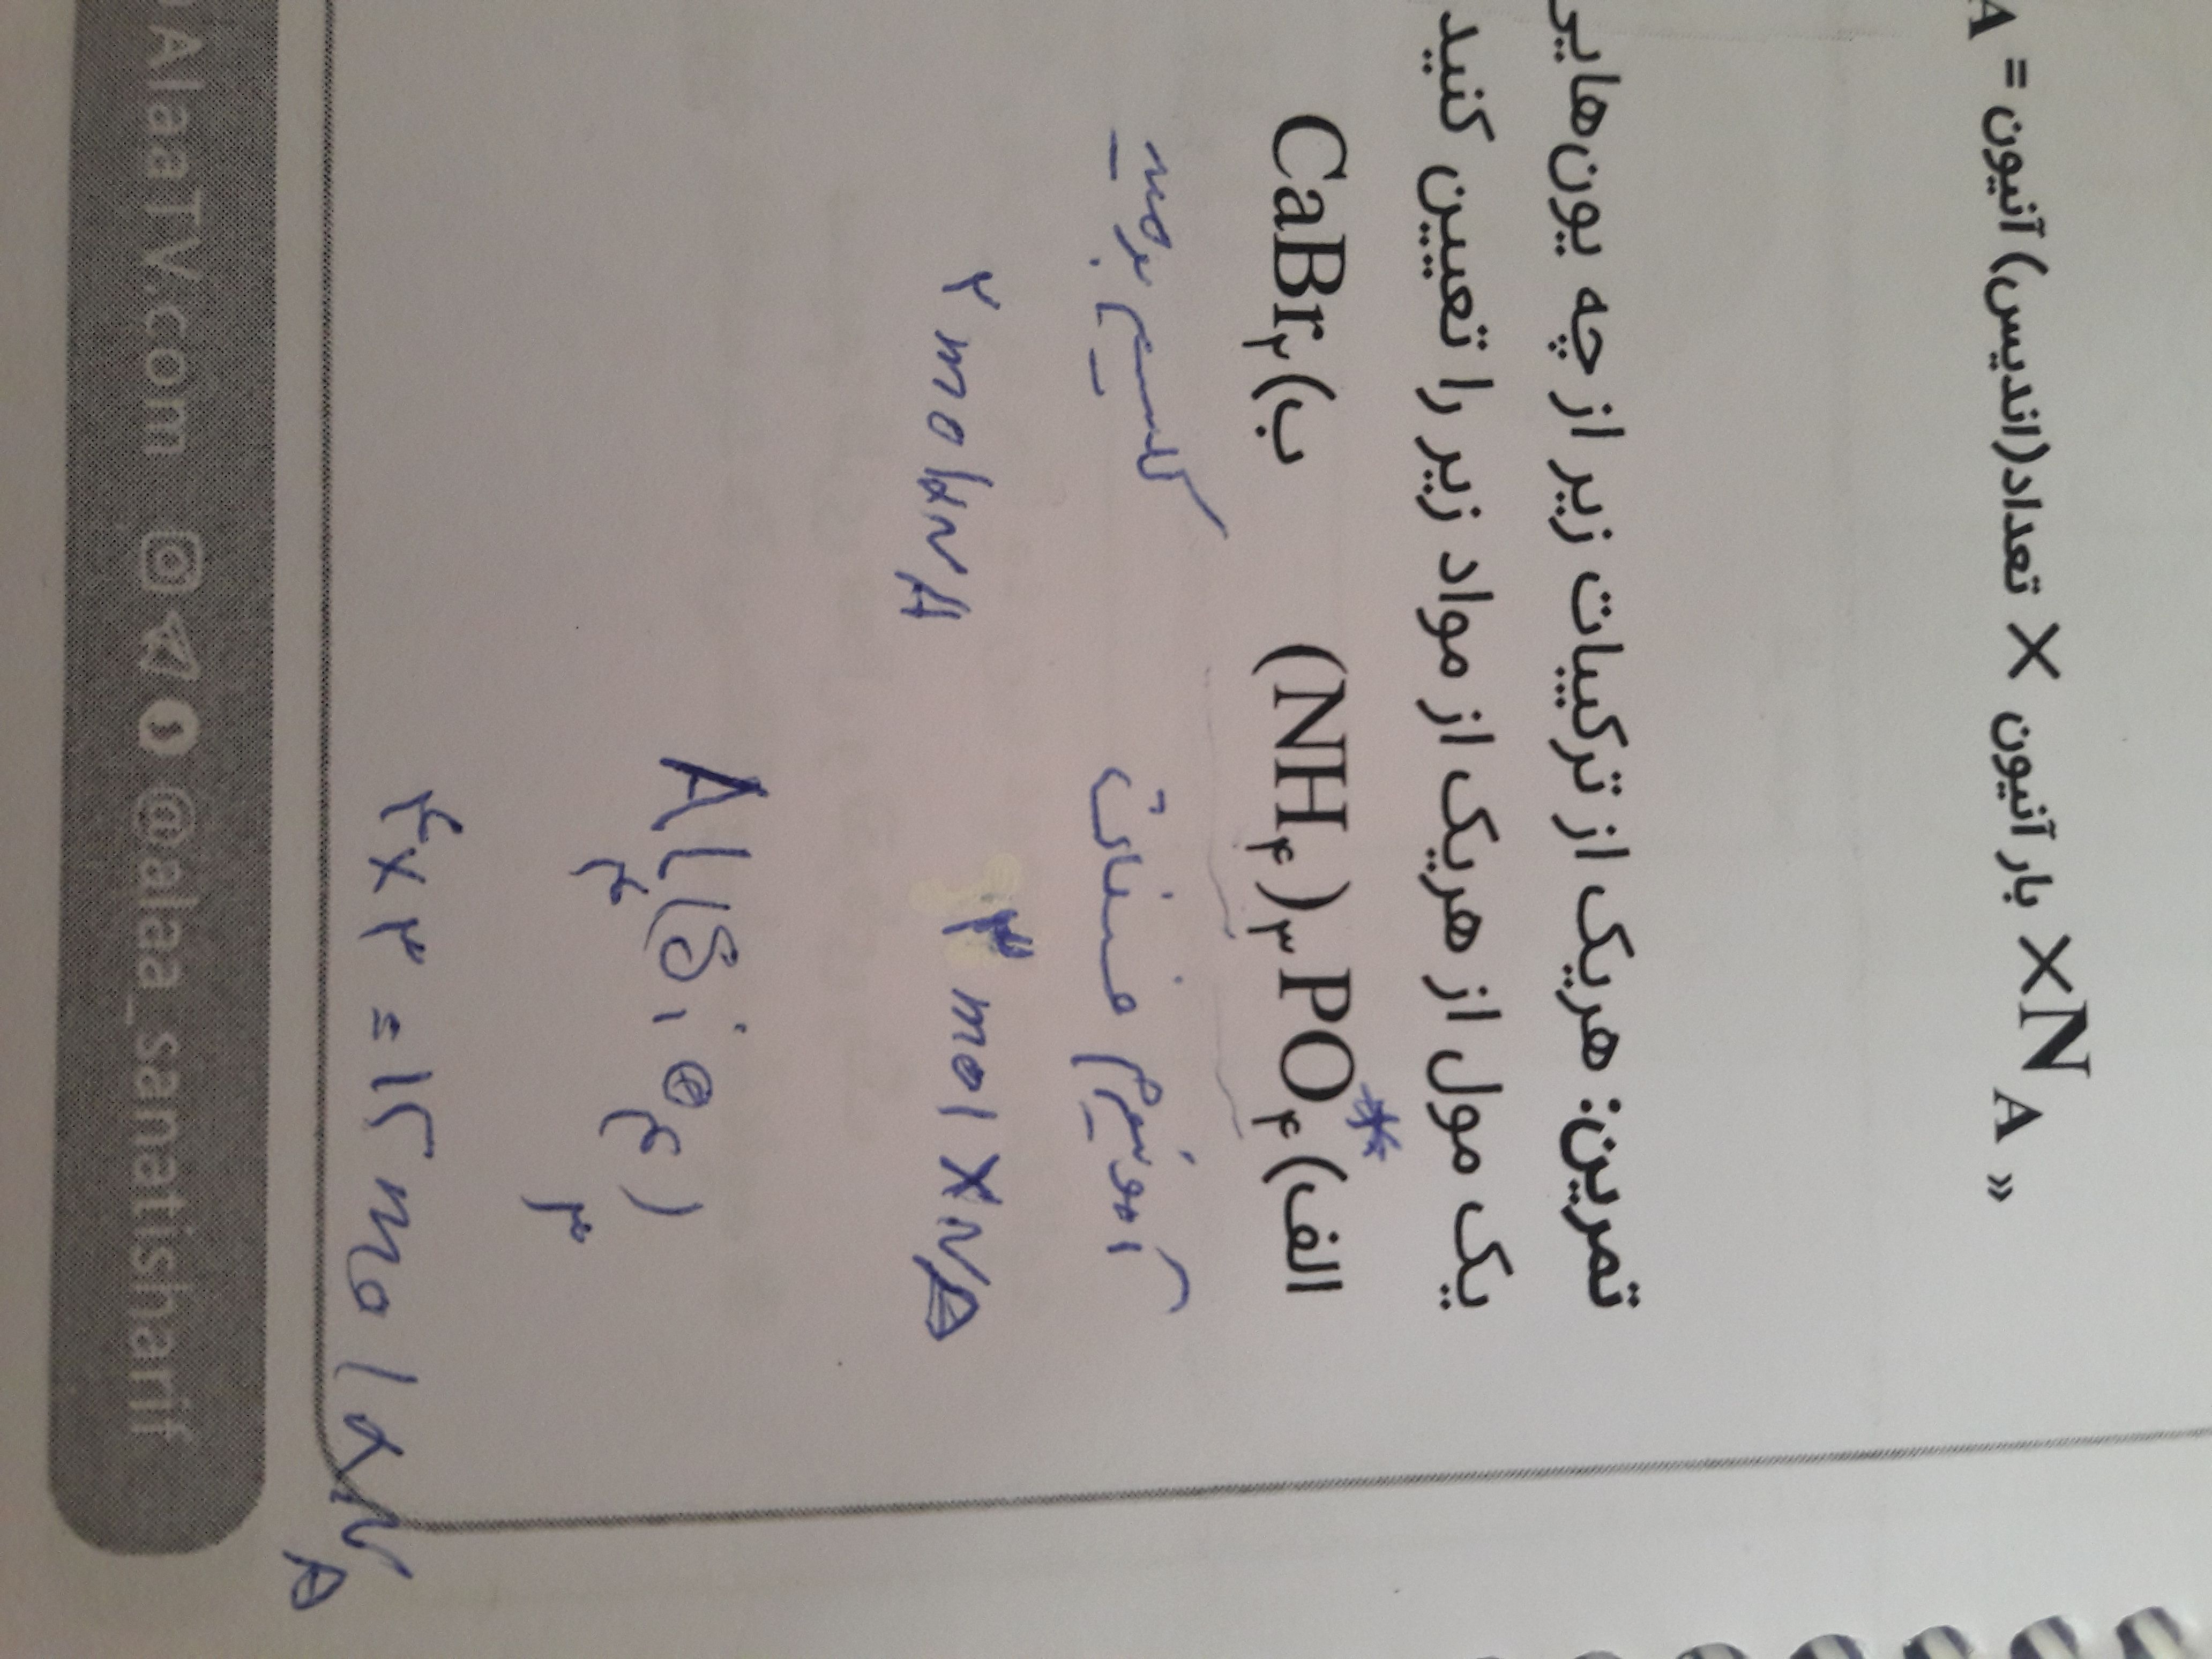 A = آنیون (اندیس)تعداد × بار آنیون × N A »
تمرین: هریک از ترکیبات زیر از چه یون‌هایی
یک مول از هریک از مواد زیر را تعیین کنید
الف) (NH۴)۳PO۴ ب) CaBr۲
* آمونیوم فسفات کلسیم برمید
۳ mol × NA ۲ mol × NA
Al۴(SiO۴)۳
۴×۳ = ۱۲ mol × NA
AlaaTV.com @alaa_sanatisharif